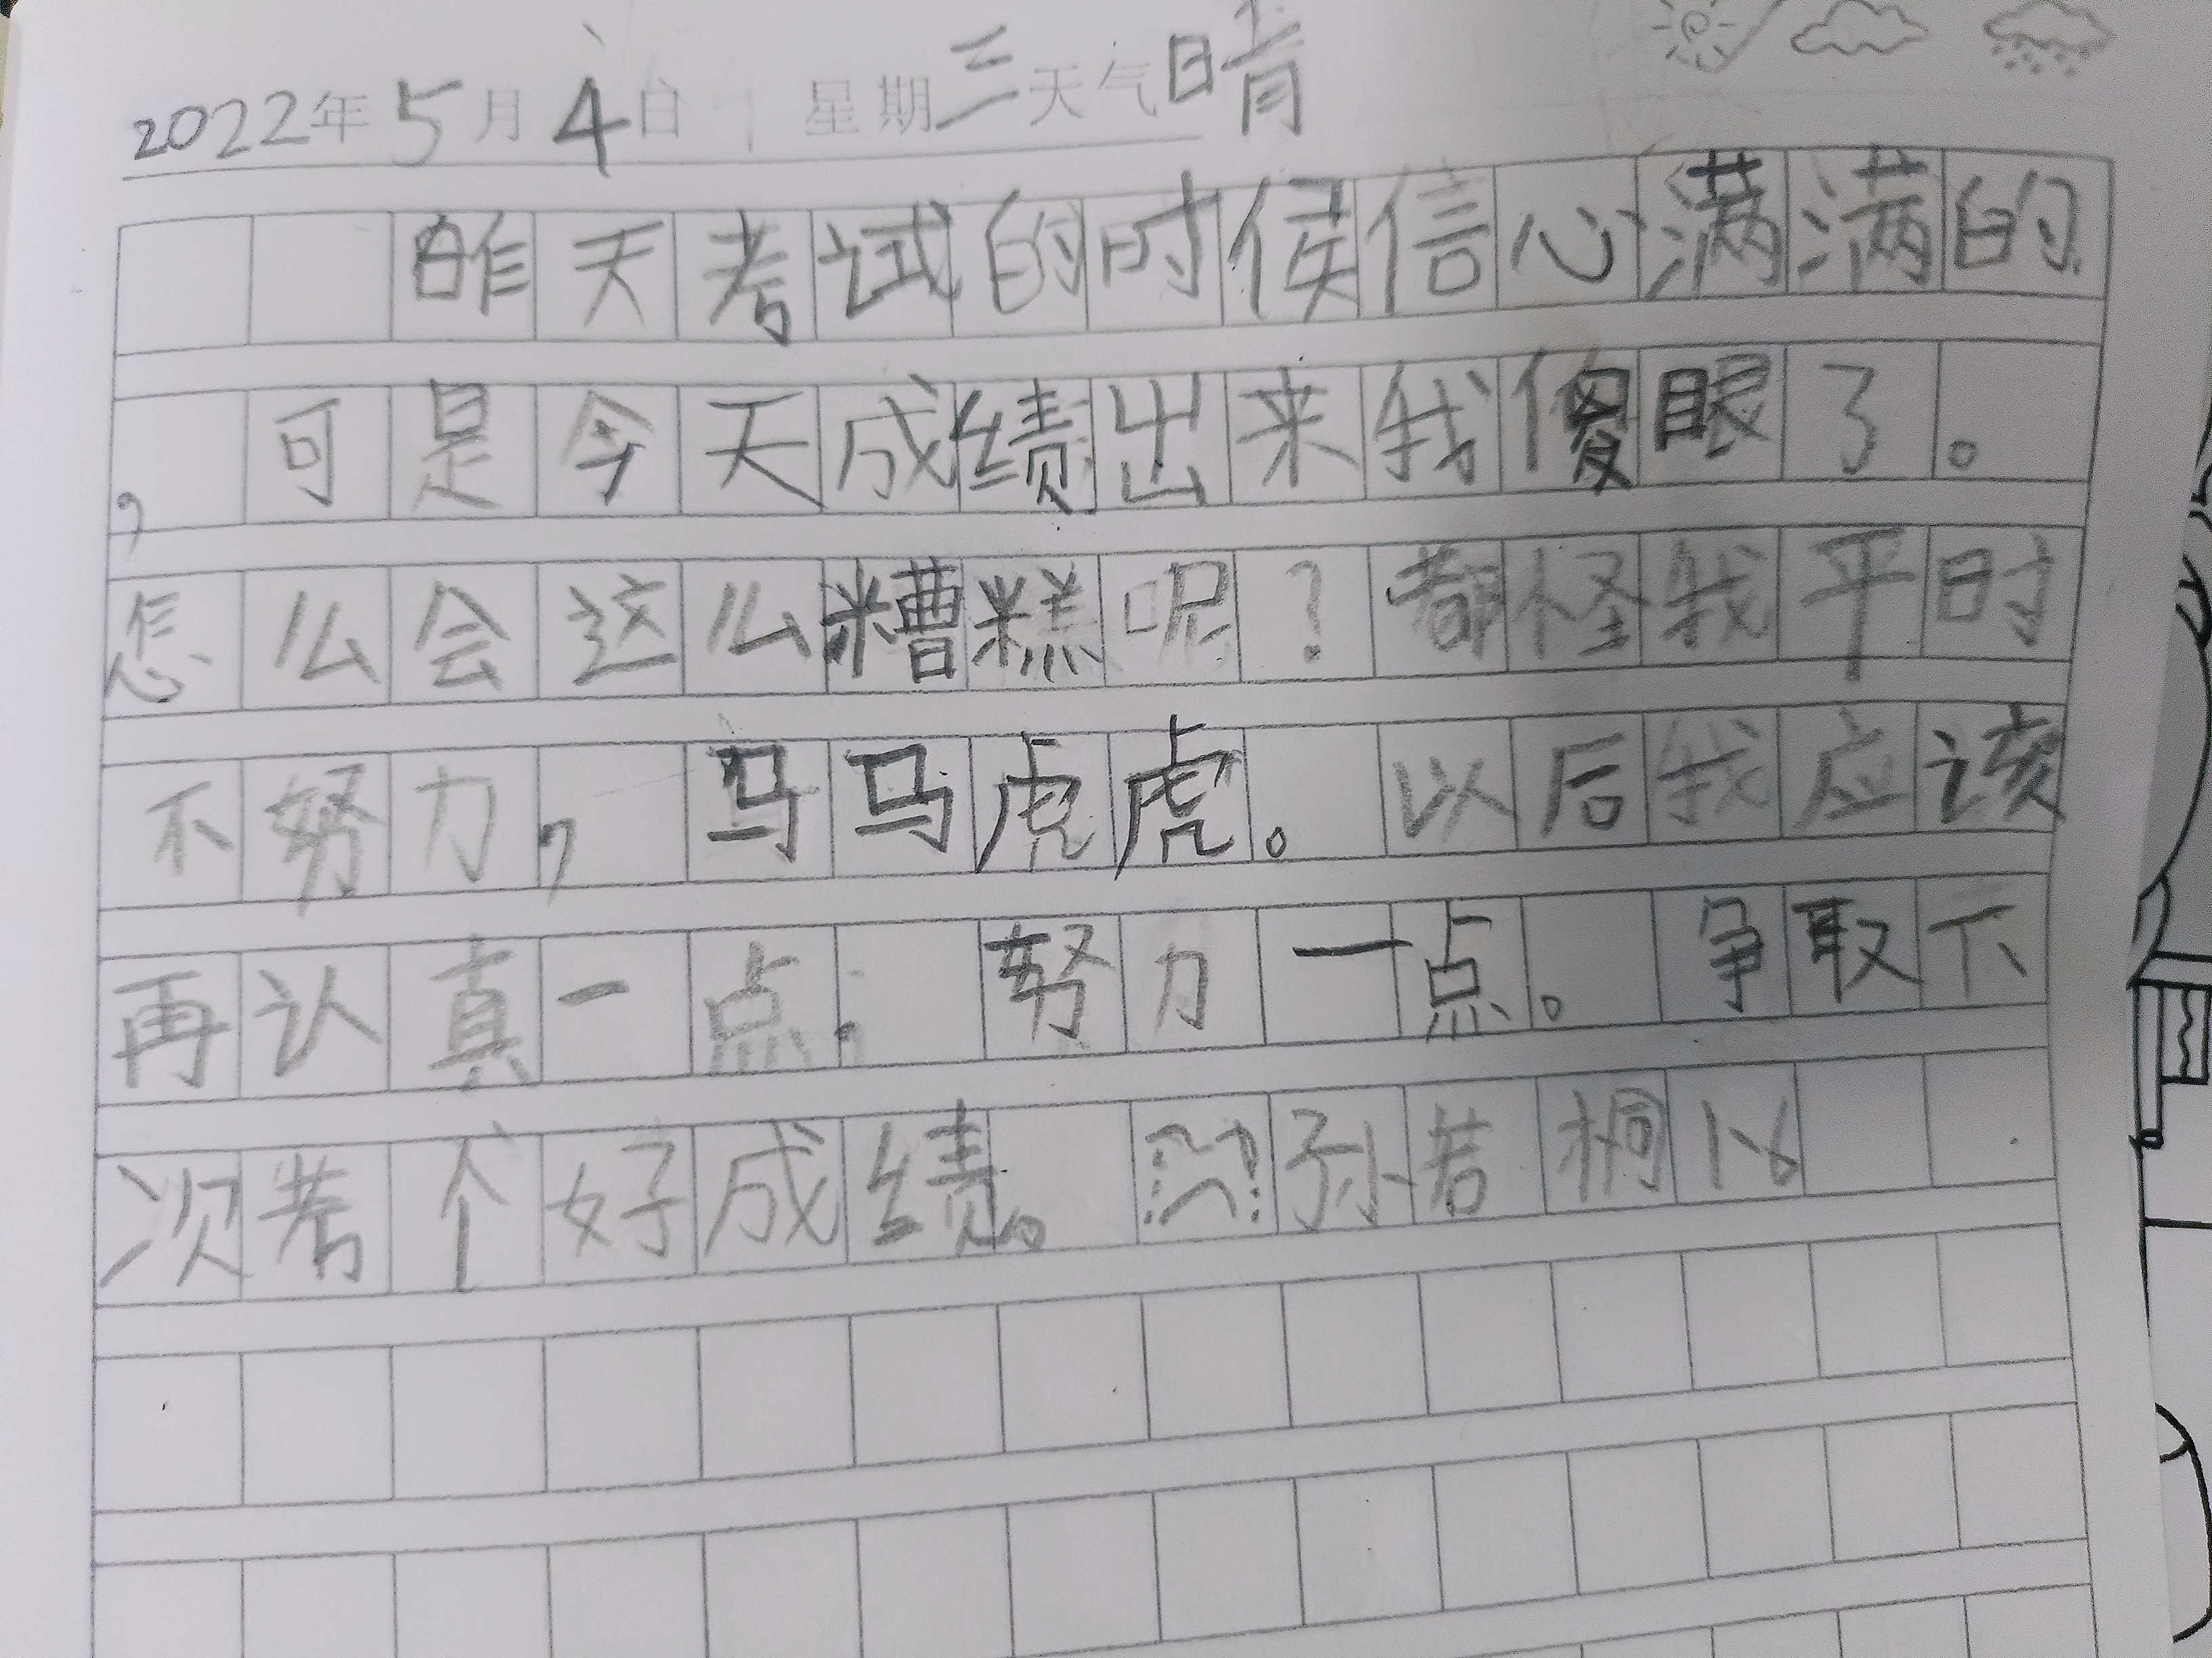 2022年5月4日 星期三天气晴
昨天考试的时候信心满满的
，可是今天成绩出来我傻眼了。
怎么会这么糟糕呢？都怪我平时
不努力，马马虎虎。以后我应该
再认真一点.努力一点。争取下
次考个好成绩。孙若桐